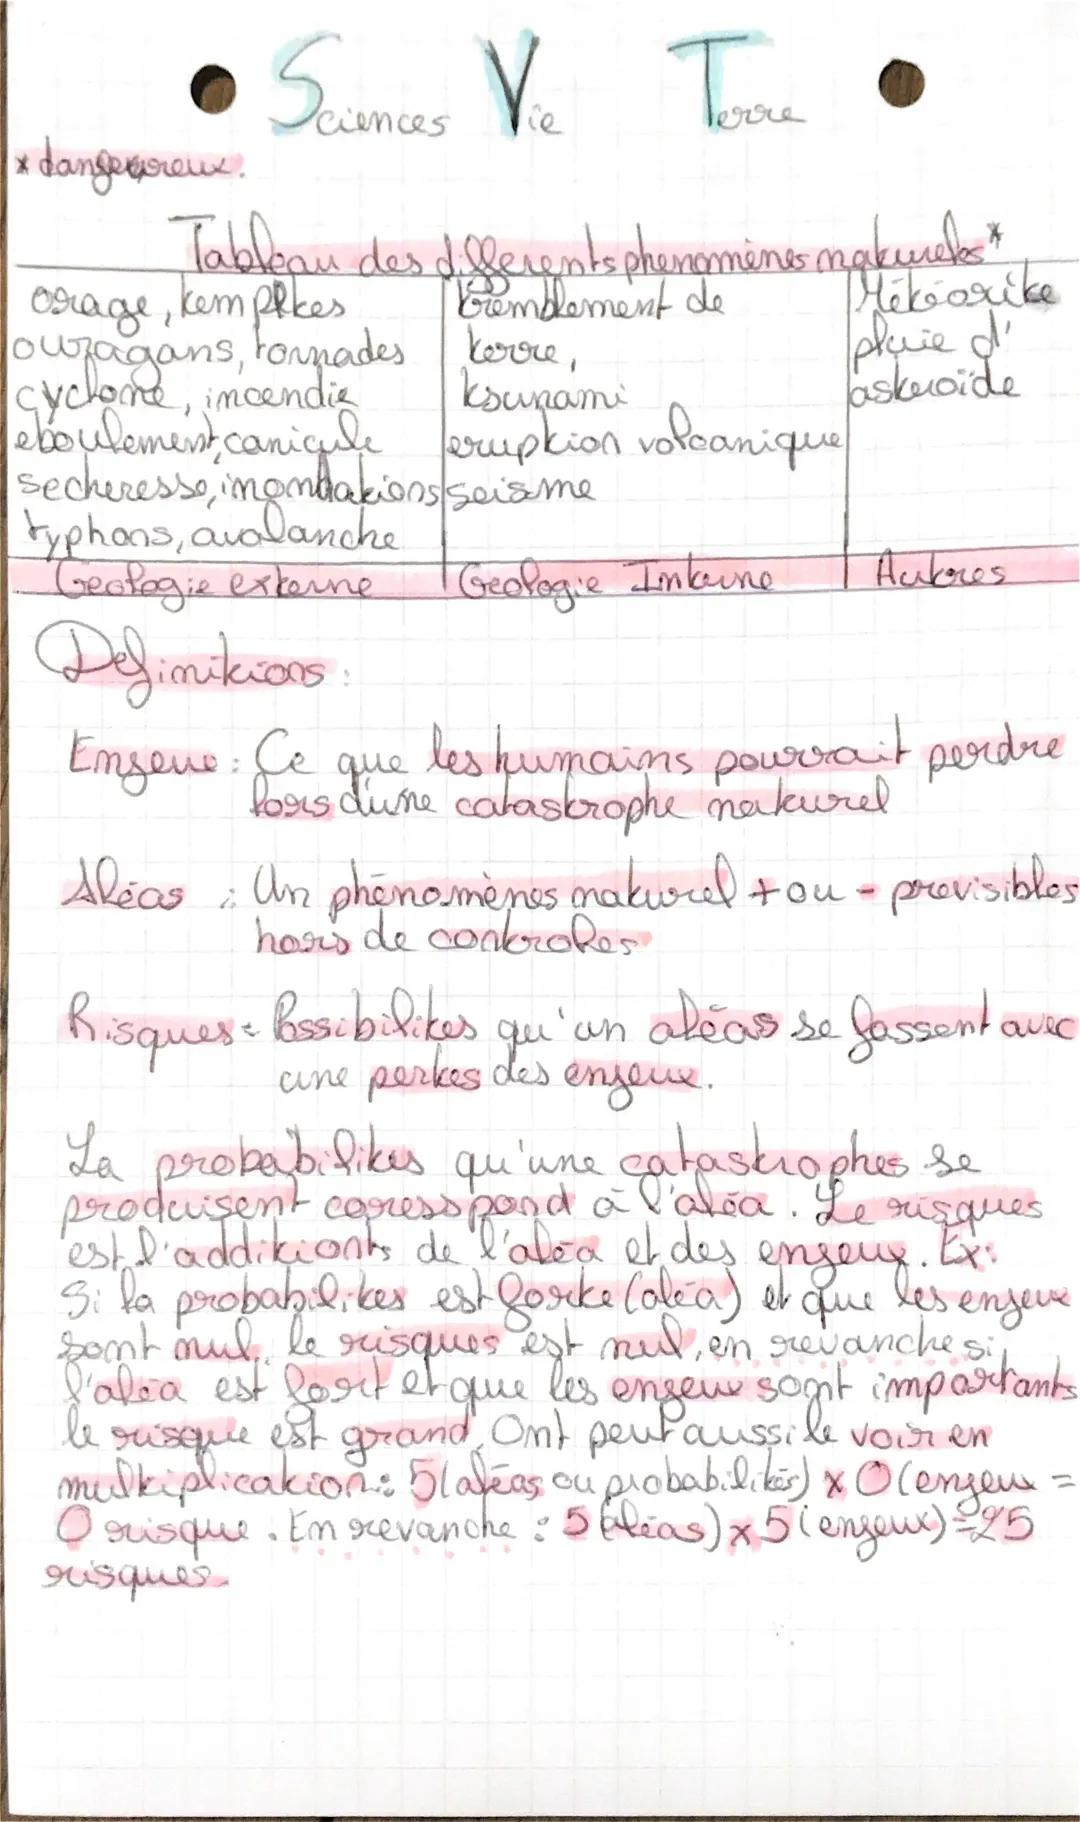 Sciences Vie Terre
* dangeureux.
Tableau des differents phenomènes naturels*
orage, tempêtes
ouragans, tornades
cyclone, incendie
eboulement, canicule
secheresse, inondations
typhons, avalanche
tremblement de
terre,
tsunami
eruption volcanique
seisme
Météorite
pluie d'
asteroïde
Geologie externe
Geologie Interne
Autres
Definitions :
Enjeux : Ce que les humains pourrait perdre
lors d'une catastrophe naturel
Aléas : Un phénomènes naturel + ou - previsibles
hors de controles
Risques : Possibilites qu'un aléas se fassent avec
une pertes des enjeux.
La probabilités qu'une catastrophes se
produisent coresspond à l'aléa. Le risques
est l'additionts de l'aléa et des enjeux. Ex:
Si la probabilites est forte (aléa) et que les enjeux
sont nul, le risques est nul, en revanche si
l'aléa est fort et que les enjeux sont importants
le risque est grand. Ont peut aussi le voir en
multiplication : 5 (aléas ou probabilités) x 0 (enjeux =
0 risque. En revanche : 5 (aléas) x 5 (enjeux) = 25
risques.